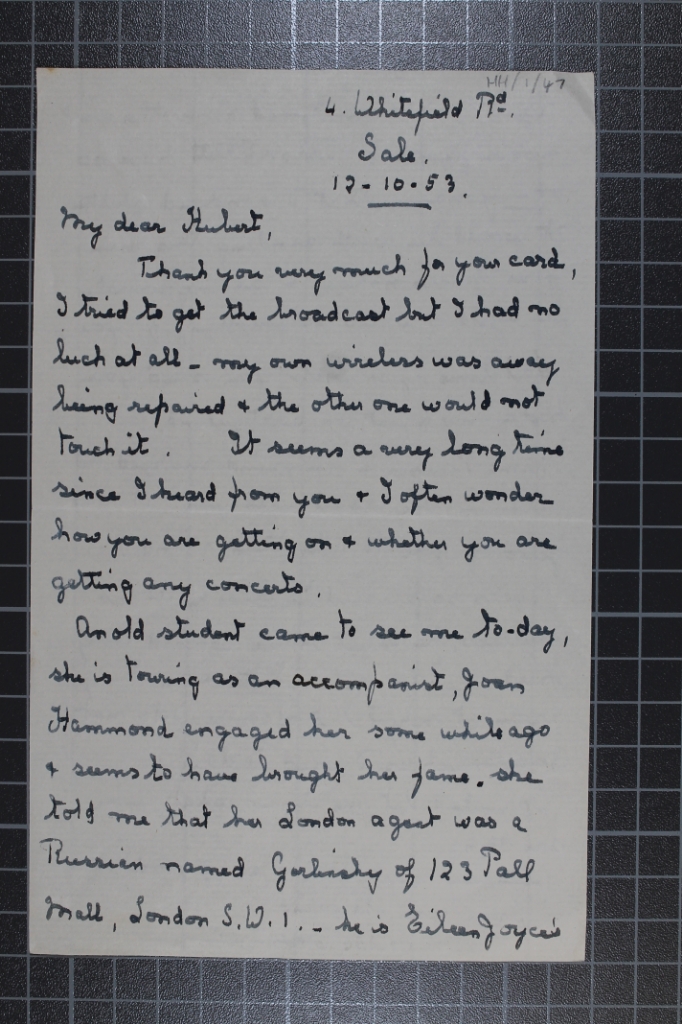 HH/1/47
4. Whitefield Rd.
Sale.
12-10-53.
My dear Hubert,
Thank you very much for your card,
I tried to get the broadcast but I had no
luck at all - my own wireless was away
being repaired & the other one would not
touch it. It seems a very long time
since I heard from you & I often wonder
how you are getting on & whether you are
getting any concerts.
An old student came to see me to-day,
she is touring as an accompanist, Joan
Hammond engaged her some while ago
& seems to have brought her fame. she
told me that her London agent was a
Russian named Gorlinsky of 123 Pall
Mall, London S.W.1. - he is Eileen Joyce's